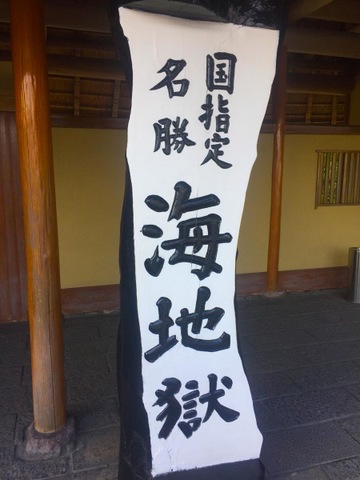 国指定
名勝
海地獄